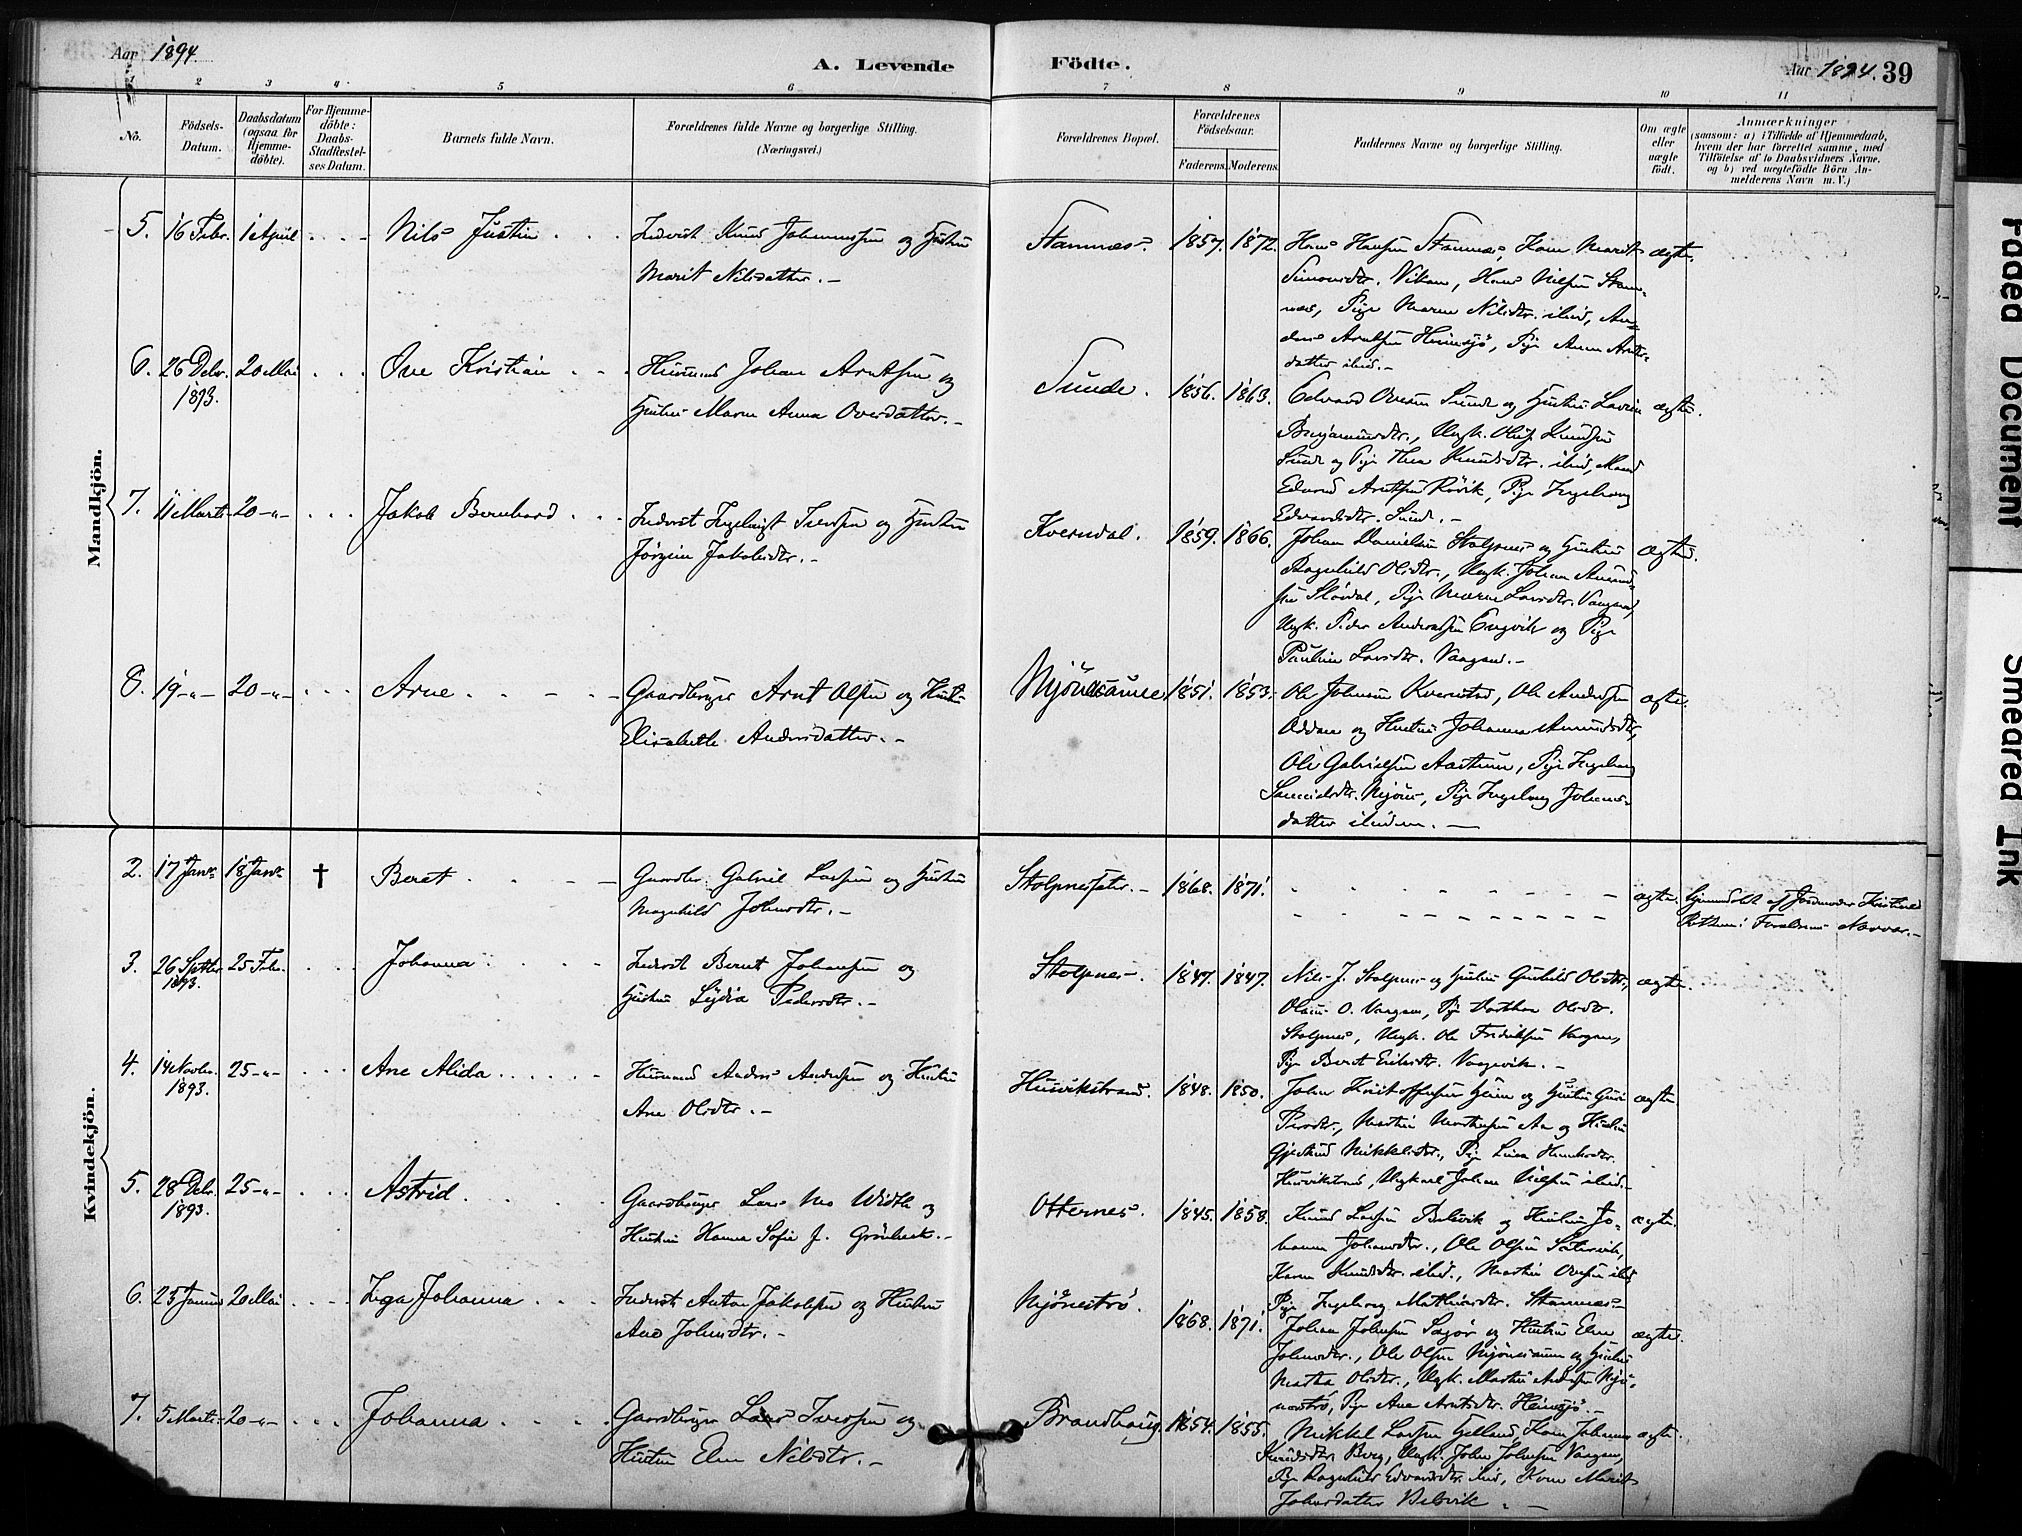 Aar 1894.
A. Levende Födte.
Aar 1894. 39
1 2 3 4 5 6 7 8 9 10 11
No.
Födsels-Datum.
Daabsdatum (ogsaa for Hjemme-döbte).
For Hjemme-döbte: Daabs-Stadfæstel-ses Datum.
Barnets fulde Navn.
Forældrenes fulde Navne og borgerlige Stilling. (Næringsvei.)
Forældrenes Bopæl.
Forældrenes Födselsaar.
Faderens. Moderens.
Faddernes Navne og borgerlige Stilling.
Om ægte eller uægte födt.
Anmærkninger
(saasom: a) i Tilfælde af Hjemmedaab,
hvem der har forrettet samme, med
Tilföielse af to Daabsvidners Navne.
og b) ved uægtefödte Börn An-
melderens Navn m. V.)
Mandkjön.
5. 16 Febr. 1 April Nils Justin
Inderst Knud Johannessen og Hustru
Marit Nilsdatter. -
Stamnes. 1857. 1872.
Hans Hansen Stamnes, Kone Marit
Simonsdtr. Vikan, Hans Nilsen Stam-
nes, Pige Maren Nilsdtr. ibid, An-
ders Arntsen Heimsjö, Pige Anna Arnts-
datter ibid. -
ægte.
6. 26 Debr. 1893. 20 Mai Ove Kristian
Husmand Johan Arntsen og
Hustru Maren Anna Oversdatter. -
Sunde. 1856. 1863.
Edvard Oversen Sunde og Hustru
Benjaminsdtr., Ungk. Oluf Knudsen
Sunde og Pige Thea Knudsdtr. ibid, Mand
Edvard Arntsen Rövik, Pige Ingeborg
Edvardsdtr. Sunde. -
ægte.
7. 11 Marts 20 -"- Jakob Bernhard
Inderst Ingebrigt Iversen og Hustru
Jörgine Jakobsdtr. -
Kverndal. 1859. 1866.
Johan Danielsen Stolpnes og Hustru
Ragnhild Olsdtr., Ungk. Johan Amund-
sen Slördal, Pige Maren Larsdtr. Vaagan,
Ungk. Peder Andersen Engvik og Pige
Pauline Larsdtr. Vaagan. -
ægte.
8. 19 -"- 20 -"- Arne
Gaardbruger Arnt Olsen og Hustr.
Elisabeth Andersdatter. -
Mjönesaunee 1851. 1853.
Ole Johnsen Kverstad, Ole Andersen
Oddan og Hustru Johanna Amundsdtr,
Ole Gabrielsen Aastum, Pige Ingeborg
Mjönes, Pige Ingeborg Johans-
datter ibidem. -
ægte.
Kvindekjön.
2. 17 Janr. 18 Janr. † Beret
Gaardbr. Gabriel Larsen og Hustru
Magnhild Johnsdtr. -
Stolpnessæter. - 1868. 1871.
ægte.
Hjemmedöbt af Jordmoder
Forældrenes Nærvær. -
3. 26 Septbr. 1893. 25 Febr. Johanna
Inderst Bernt Johansen og
Hustru Lydia Pedersdtr. -
Stolpnes - 1847. 1847.
Nils J. Stolpnes og Hustru Gunhild Olsdtr,
O. Vaagan, Pige Dorthea Olsdtr.
Stolpnes, Ungk. Ole Fredriksen Vaagan,
Pige Beret Eriksdtr. Vaagevik. -
ægte.
4. 14 Novbr. 1893. 25 -"- Ane Alida
Husmand Anders Andersen og Hustru
Ane Olsdtr. -
Husvikstrand. 1848. 1850.
John Kristoffersen Heim og Hustru Guri
Persdtr., Martin Mortensen Aa og Hustru
Gjertrud Mikkelsdtr., Pige Lina Henriksdtr.
Husvikstrand, Ungkarl Johan Nilsen ibid. -
ægte
5. 28 Debr. 1893. 25 -"- Astrid
Gaardbruger Lars Mo Width og
Hustru Hanna Sofie J. Grönbeck. -
Otternes. 1845. 1858.
Knud Larsen Belsvik og Hustru Jo-
hanna Johansdtr., Ole Olsen Sætervik,
Karen Knudsdtr. ibid., Martin Oversen ibid
Pige Ingeborg Mathiasdtr. Stamnes -
ægte.
6. 25 Januar 20 Mai Inga Johanna
Inderst Anton Jakobsen og Hustru
Ane Johnsdtr. -
Mjöneströ. 1868. 1871.
Johan Johnsen Sagör og Hustru Elen
Johnsdtr., Ole Olsen Mjönesaunet og Hustru
Martha Olsdtr., Ungk. Martin Andersen Mjö-
neströ, Pige Ane Arntsdtr. Heimsjö. -
ægte.
7. 5 Marts 20 -"- Johanna
Gaardbruger Lars Iversen og
Hustru Elen Nilsdtr. -
Brandhaug 1854. 1855.
Mikkel Larsen Hjelland, Kone Johanna
Knudsdtr. Berg, Ungk. John Johnsen Vaagan,
Pige Ragnhild Edvardsdtr. ibid, Kone Marit
Johnsdatter Belsvik. -
ægte.
Faded Document
Smeared Ink